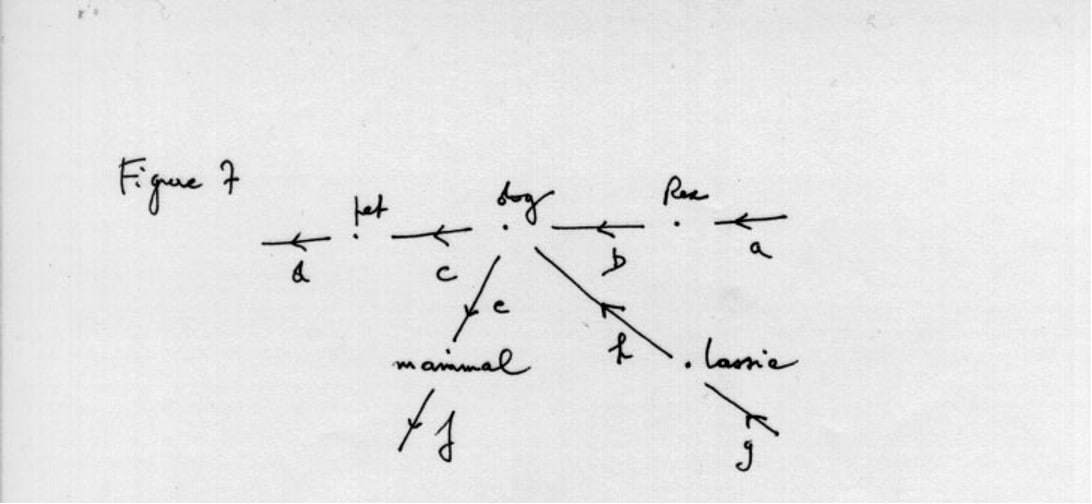 Figure 7
pet
dog
Rex
d
c
b
a
e
mammal
h
lassie
f
g